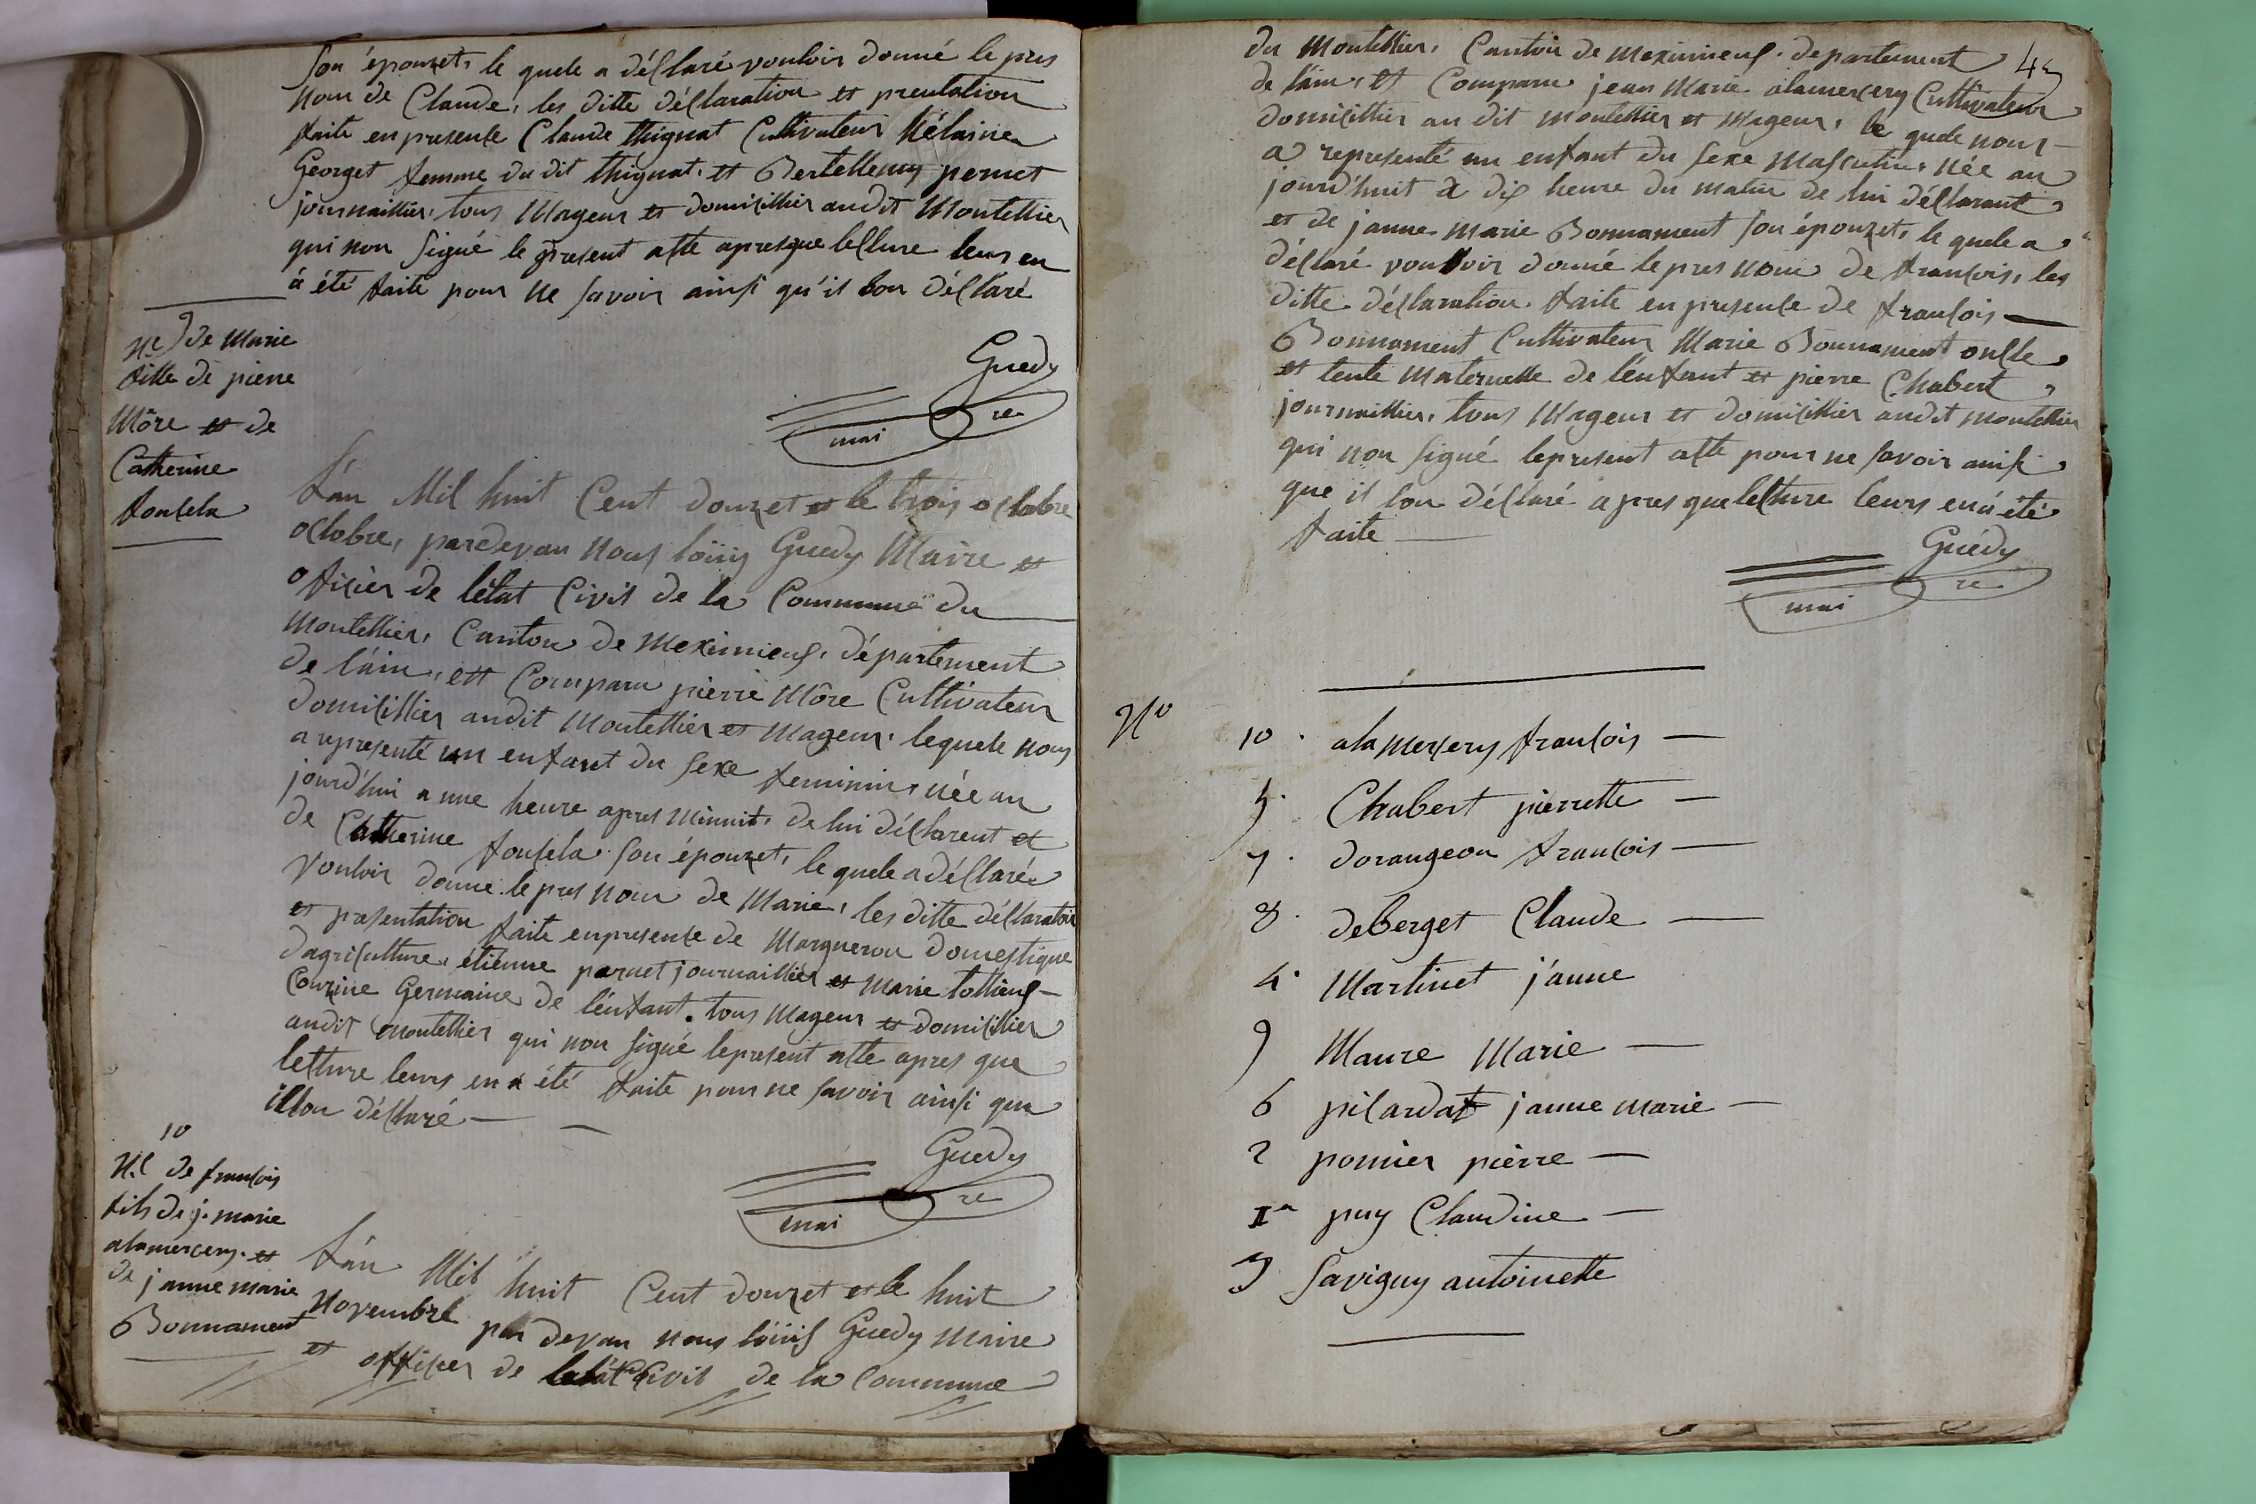 son épouzet, le quele a déclaré vouloir donné le pres
nom de Claude, les ditte déclaration et preutation
faite en presence Claude thignat Cultivateur hélaine
Georget femme du dit thignat, et Bertellemy pernet
journaillier, tous Mageur et domicillier audit Montellier
qui non signé le present acte apresque lecture leur en
a été faite pour ne savoir ainsi qu'il lon déclaré
Guedy
mai re
9
Nce de Marie
fille de pierre
Môre et de
Catherine
foncela
L'án Mil huit Cent douzet et le trois octobre
octobre, pardevan nous loüis Guedy Maire et
oficier de létat Civil de la Commune du
Montellier, Canton de Meximieus, département
de l'ain, ett Comparu pierre Môre Cultivateur
domicillier audit Montellier et Mageur, lequele nous
a representé un enfant du sexe feminin, née au
jourd'hui a une heure apres Minuit, de lui déclarent et
de Catherine foncela son épouzet, le quele a déclaré
vouloir donné le pres nom de Marie, les ditte déclaration
et presentation faite enpresence de Marguerou domestique
dagriculture, étienne pernet journaillier et Marie tollieus
Couzine Germaine de lénfant, tous Mageur et domicillier
audit Montellier qui non signé lepresent acte apres que
lecture leurs en a été faite pour ne savoir ainsi que
illon déclaré
Guedy
mai re
10
Nce de francois
fils de j. marie
alamercery et
de janne marie
Bonnament
L'án Mil huit Cent douzet et le huit
Novembre par devan nous loüis Guedy Maire
et officier de Civil de la Commune
43
du Montellier, Canton de Meximieus, departement
de l'ain, et Comparu jean Marie alamercery Cultivateur
domicillier au dit Montellier et Mageur, le quele nous
a representé un enfant du sexe Masculin, née au
jourd'huit a dix heure du matin de lui déclarant
et de janne marie Bonnament son épouzet, le quele a
déclaré vouloir donné le pres nom de francois, les
ditte déclaration, faite en presence de francois
Bonnament Cultivateur Marie Bonnament oncle
et tente Maternelle de lénfant et pierre Chabert
journaillier, tous Mageur et domicillier audit Montellier
qui non signé lepresent acte pour ne savoir ainsi
que il lon déclaré apres que lecture leurs en a été
faite
Guedy
mai re
No
10 alamercery francois
5 Chabert pierrette
7 dorangeon francois
8 deberget Claude
4 Martinet j'anne
9 Maure Marie
6 picardat janne marie
2 pomier pièrre
1er puy Claudine
3 Savigny antoinette